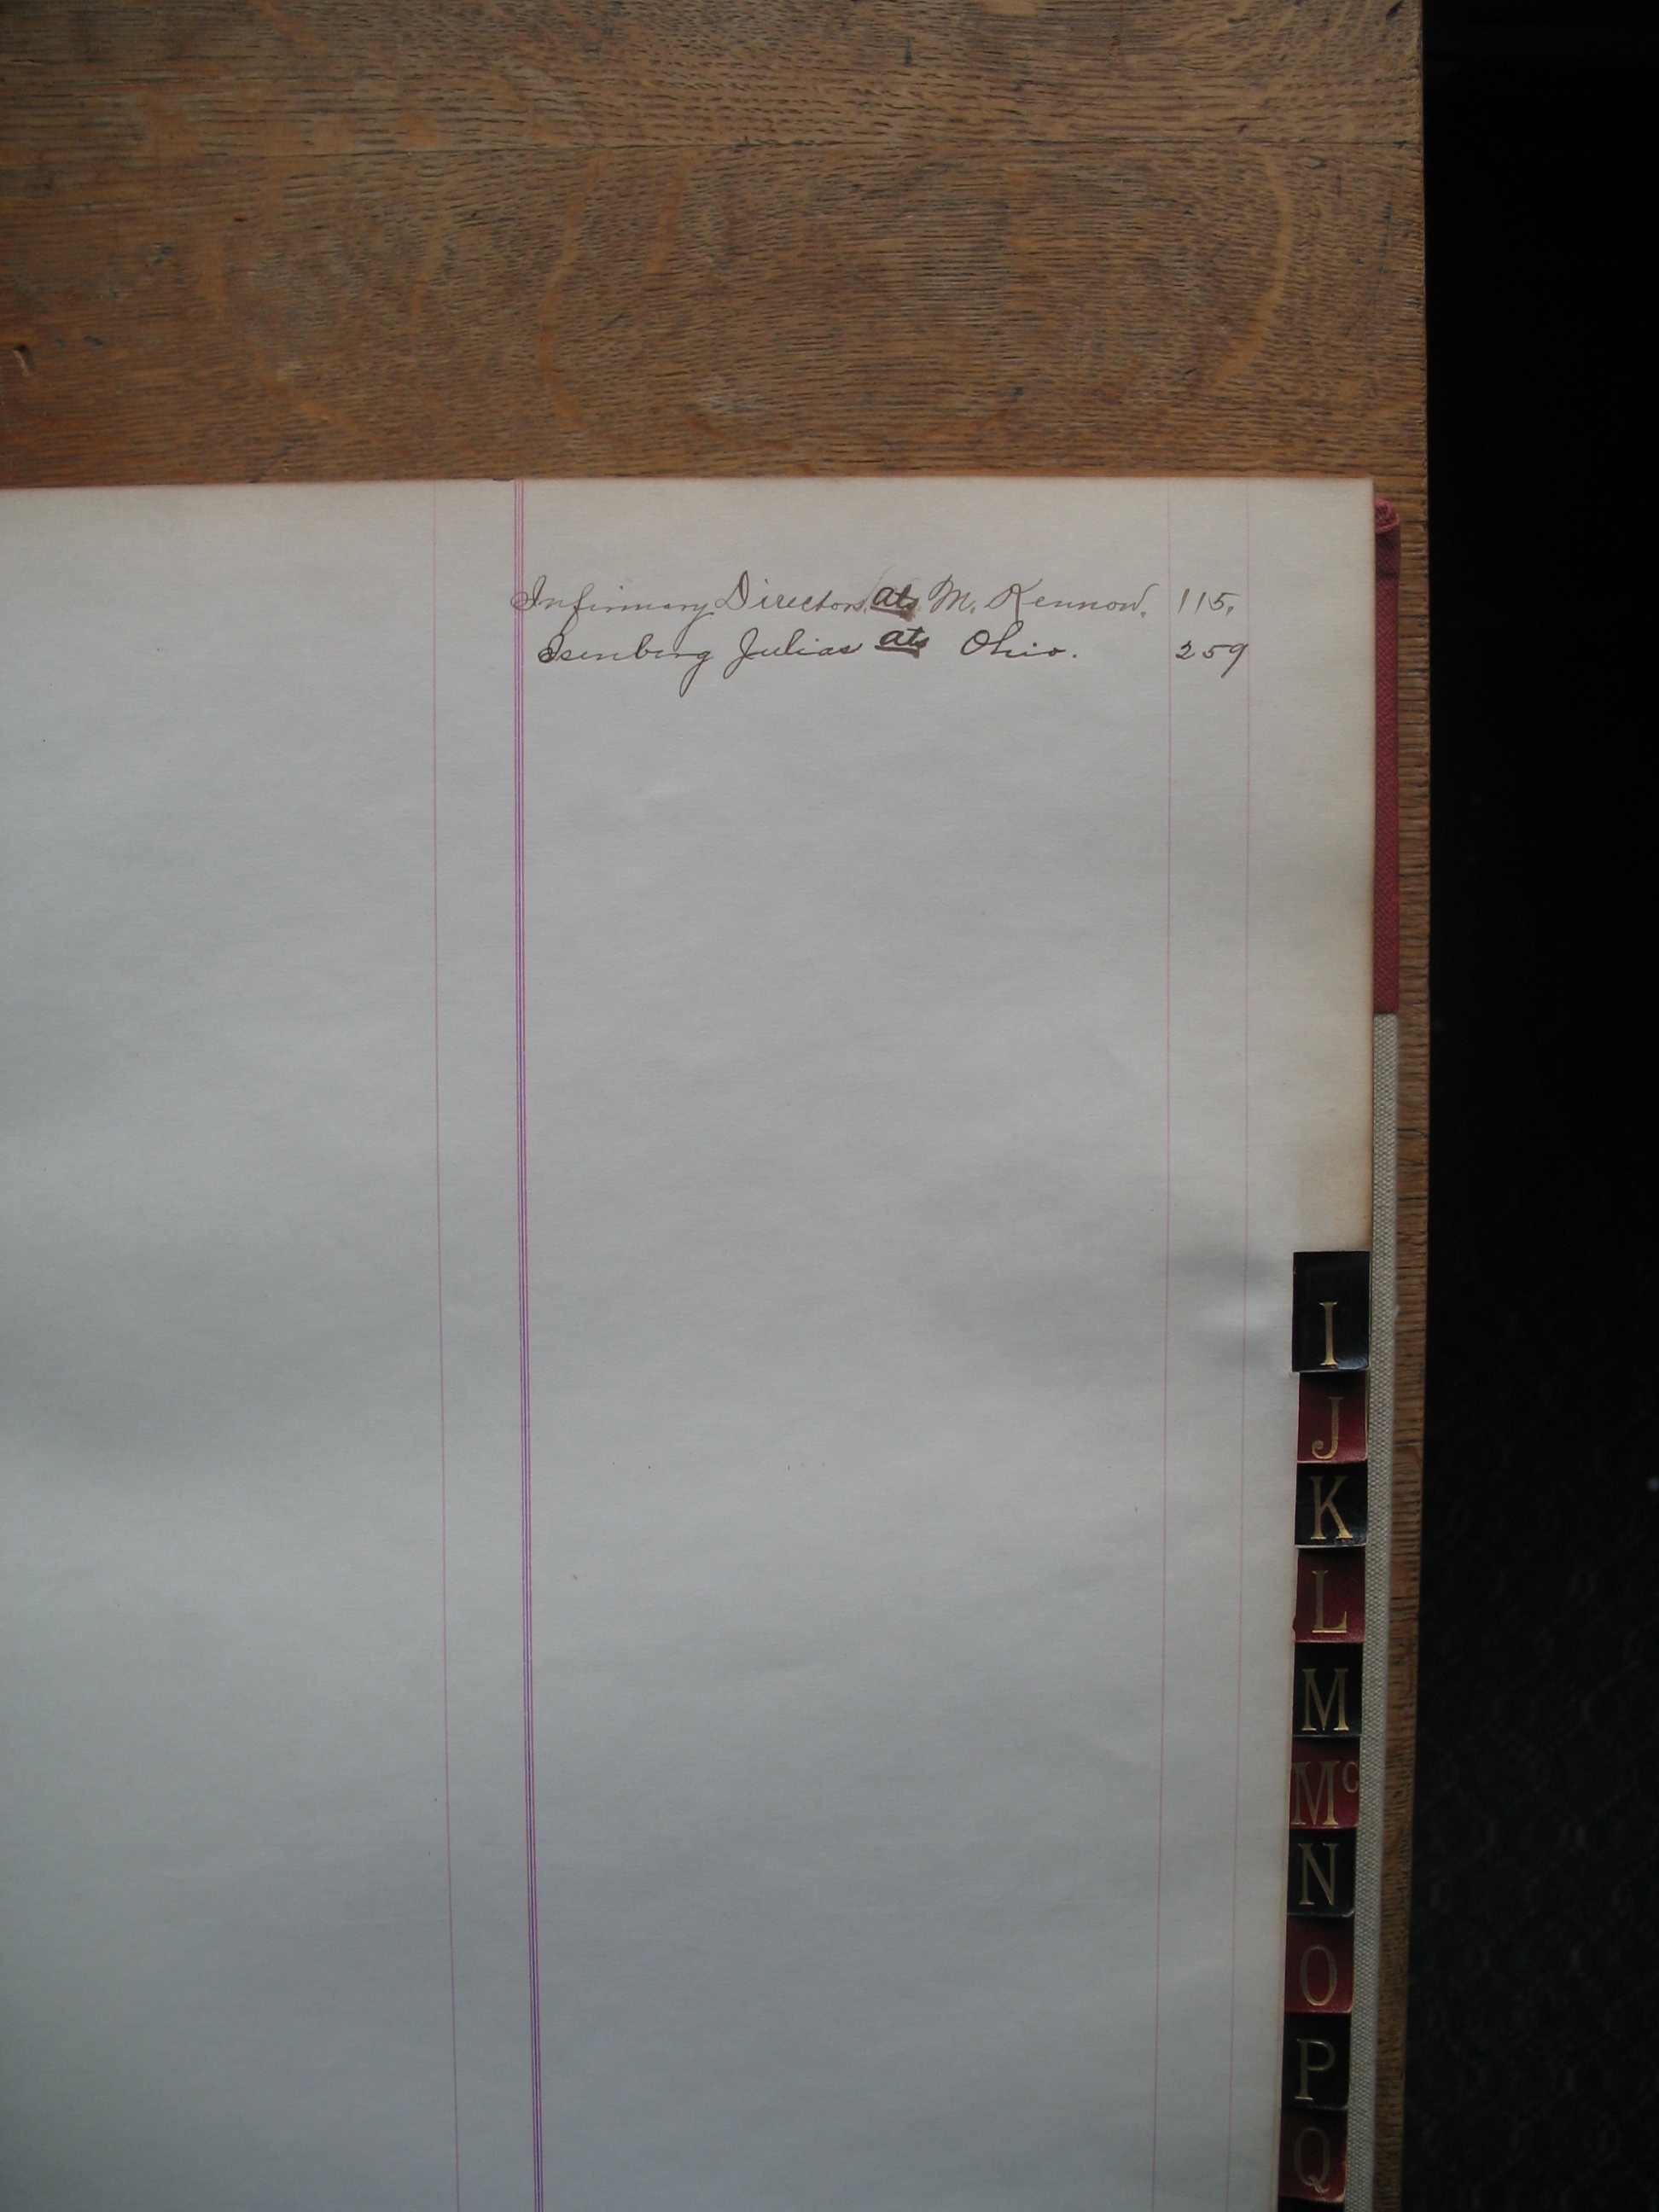 Infirmary Directors ats M. Kennow. 115.
Isenberg Julias ats Ohio. 259
I
J
K
L
M
Mc
N
O
P
Q